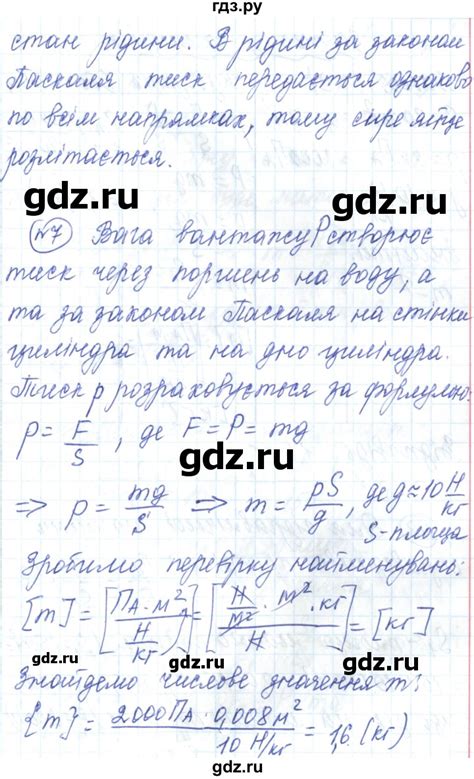 гдз.ру
стан рідини. В рідині за законом
Паскаля тиск передається однаково
по всім напрямках, тому сире яйце
розлітається.
gdz.ru gdz.ru
№7 Вага вантажу P створює
тиск через поршень на воду, а
та за законом Паскаля на стінки
циліндра та на дно циліндра.
gdz.ru gdz.ru
Тиск p розраховується за формулою:
p = F/S , де F = P = mg
gdz.ru gdz.ru
⇒ p = mg/S ⇒ m = pS/g, де g ≈ 10 Н/кг
S - площа
Зробимо перевірку найменувань:
gdz.ru gdz.ru
[m] = [Па · м² / Н/кг] = [Н/м² · м² · кг / Н] = [кг]
gdz.ru gdz.ru
Знайдемо числове значення m:
{m} = 2000 Па · 0,008 м² / 10 Н/кг = 1,6 (кг)
gdz.ru gdz.ru
гдз.ру